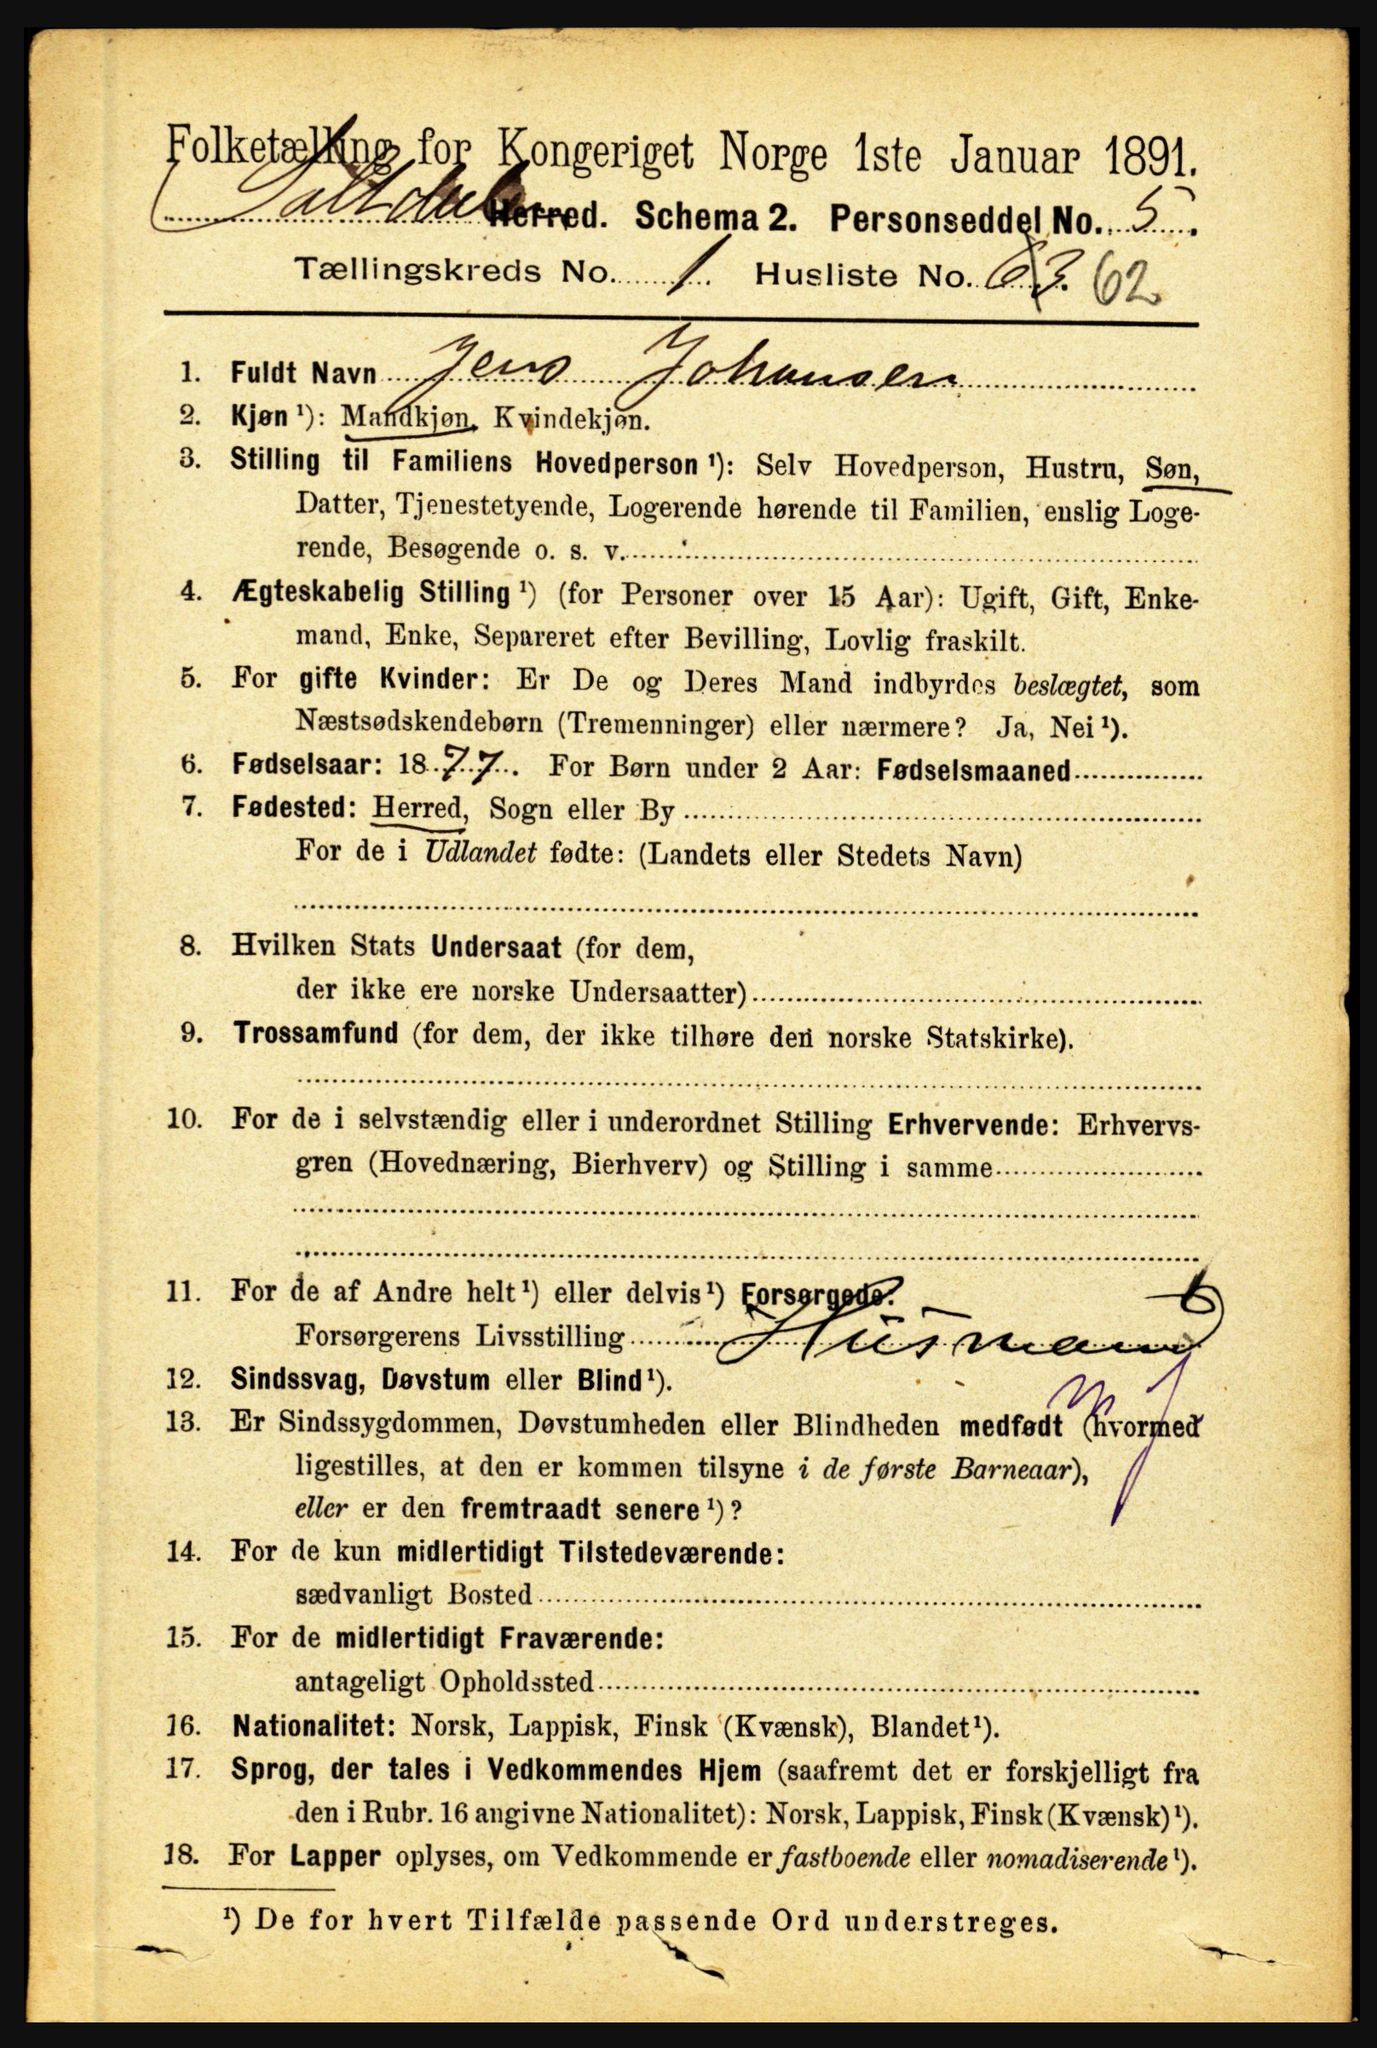 Folketælling for Kongeriget Norge 1ste Januar 1891.
Saltdalen Herred. Schema 2. Personseddel No. 5.
Tællingskreds No. 1. Husliste No. 63. 62
1. Fuldt Navn Jens Johansen
2. Kjøn ¹): Mandkjøn, Kvindekjøn.
3. Stilling til Familiens Hovedperson ¹): Selv Hovedperson, Hustru, Søn,
Datter, Tjenestetyende, Logerende hørende til Familien, enslig Loge-
rende, Besøgende o. s. v.
4. Ægteskabelig Stilling ¹) (for Personer over 15 Aar): Ugift, Gift, Enke-
mand, Enke, Separeret efter Bevilling, Lovlig fraskilt.
5. For gifte Kvinder: Er De og Deres Mand indbyrdes beslægtet, som
Næstsødskendebørn (Tremenninger) eller nærmere? Ja, Nei ¹).
6. Fødselsaar: 1877. For Børn under 2 Aar: Fødselsmaaned
7. Fødested: Herred, Sogn eller By
For de i Udlandet fødte: (Landets eller Stedets Navn)
8. Hvilken Stats Undersaat (for dem,
der ikke ere norske Undersaatter)
9. Trossamfund (for dem, der ikke tilhøre den norske Statskirke).
10. For de i selvstændig eller i underordnet Stilling Erhvervende: Erhvervs-
gren (Hovednæring, Bierhverv) og Stilling i samme
11. For de af Andre helt ¹) eller delvis ¹) Forsørgede:
Forsørgerens Livsstilling Husmand
12. Sindssvag, Døvstum eller Blind ¹).
13. Er Sindssygdommen, Døvstumheden eller Blindheden medfødt (hvormed
ligestilles, at den er kommen tilsyne i de første Barneaar),
eller er den fremtraadt senere ¹)?
14. For de kun midlertidigt Tilstedeværende:
sædvanligt Bosted
15. For de midlertidigt Fraværende:
antageligt Opholdssted
16. Nationalitet: Norsk, Lappisk, Finsk (Kvænsk), Blandet ¹).
17. Sprog, der tales i Vedkommendes Hjem (saafremt det er forskjelligt fra
den i Rubr. 16 angivne Nationalitet): Norsk, Lappisk, Finsk (Kvænsk) ¹).
18. For Lapper oplyses, om Vedkommende er fastboende eller nomadiserende ¹).
¹) De for hvert Tilfælde passende Ord understreges.